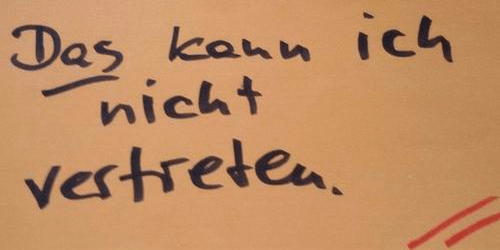 Das kann ich
nicht
vertreten.